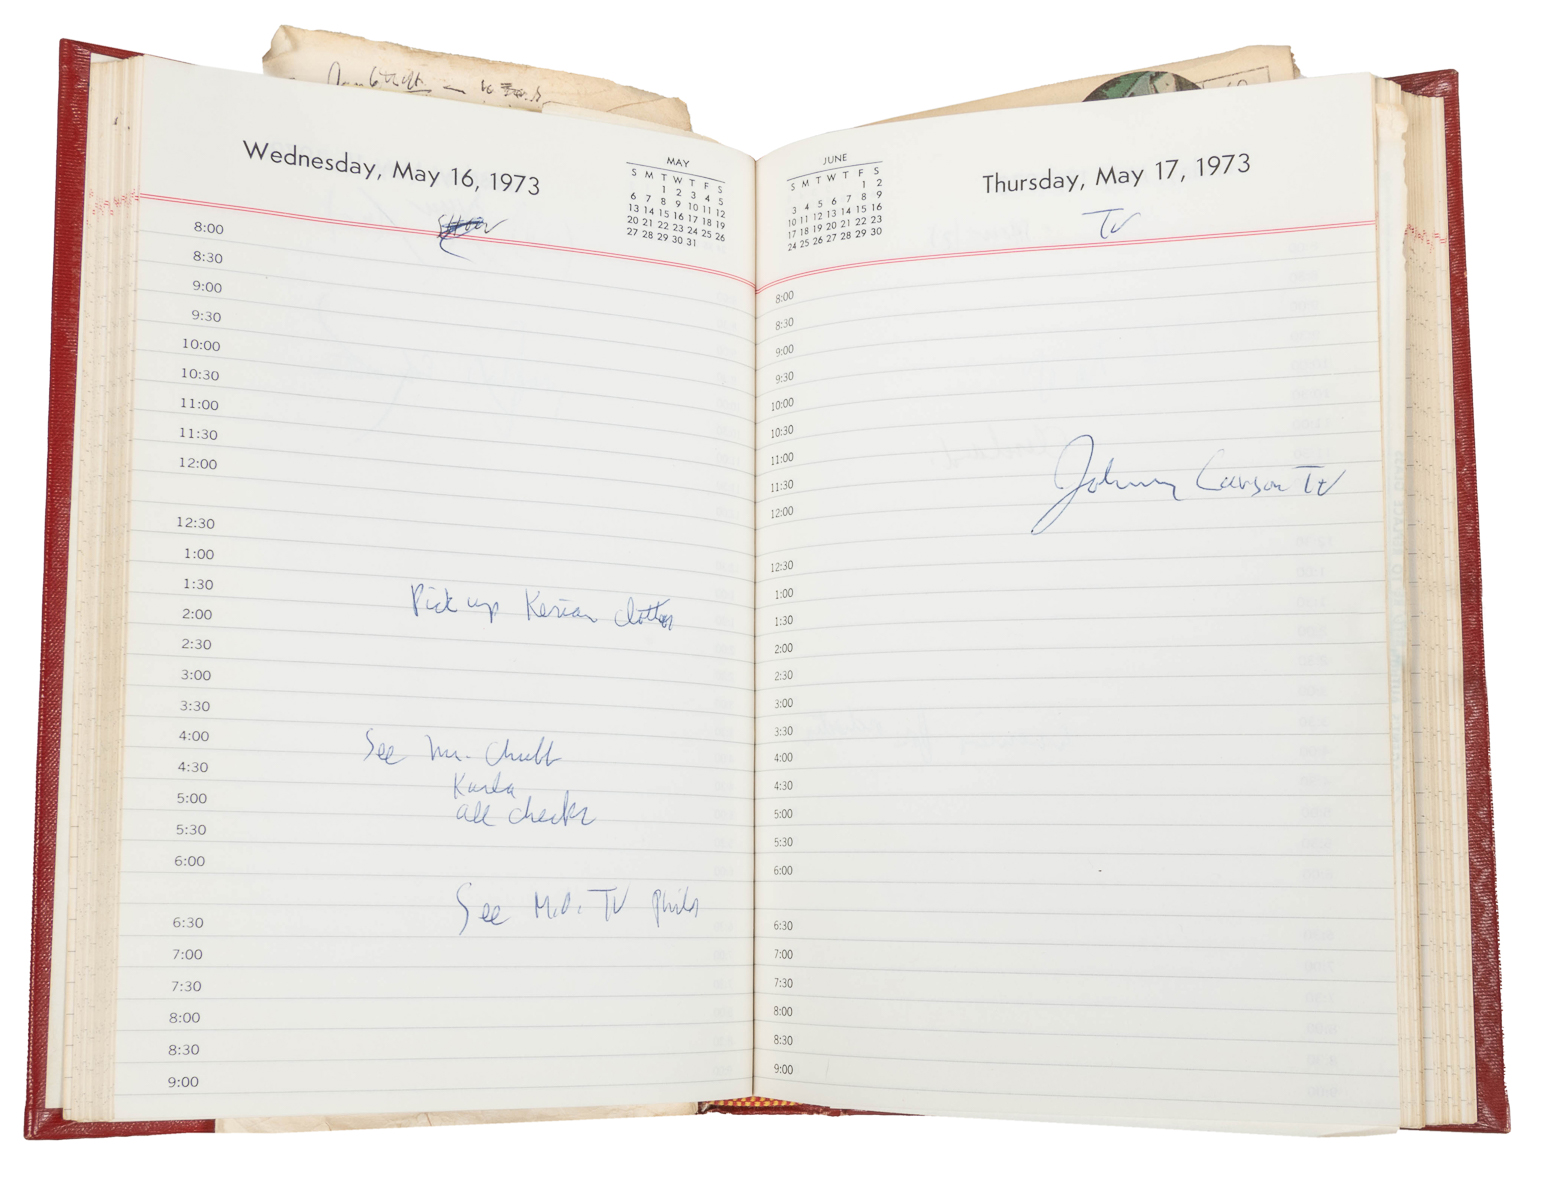 Wednesday, May 16, 1973
MAY
S M T W T F S
1 2 3 4 5
6 7 8 9 10 11 12
13 14 15 16 17 18 19
20 21 22 23 24 25 26
27 28 29 30 31
8:00
8:30
9:00
9:30
10:00
10:30
11:00
11:30
12:00
12:30
1:00
1:30
Pick up Kerian clothes
2:00
2:30
3:00
3:30
4:00
See Mr. Chubb
4:30
Karla
5:00
all checks
5:30
6:00
See M.D. TV
6:30
7:00
7:30
8:00
8:30
9:00
JUNE
S M T W T F S
1 2
3 4 5 6 7 8 9
10 11 12 13 14 15 16
17 18 19 20 21 22 23
24 25 26 27 28 29 30
Thursday, May 17, 1973
TV
8:00
8:30
9:00
9:30
10:00
10:30
11:00
11:30
Johnny Carson TV
12:00
12:30
1:00
1:30
2:00
2:30
3:00
3:30
4:00
4:30
5:00
5:30
6:00
6:30
7:00
7:30
8:00
8:30
9:00